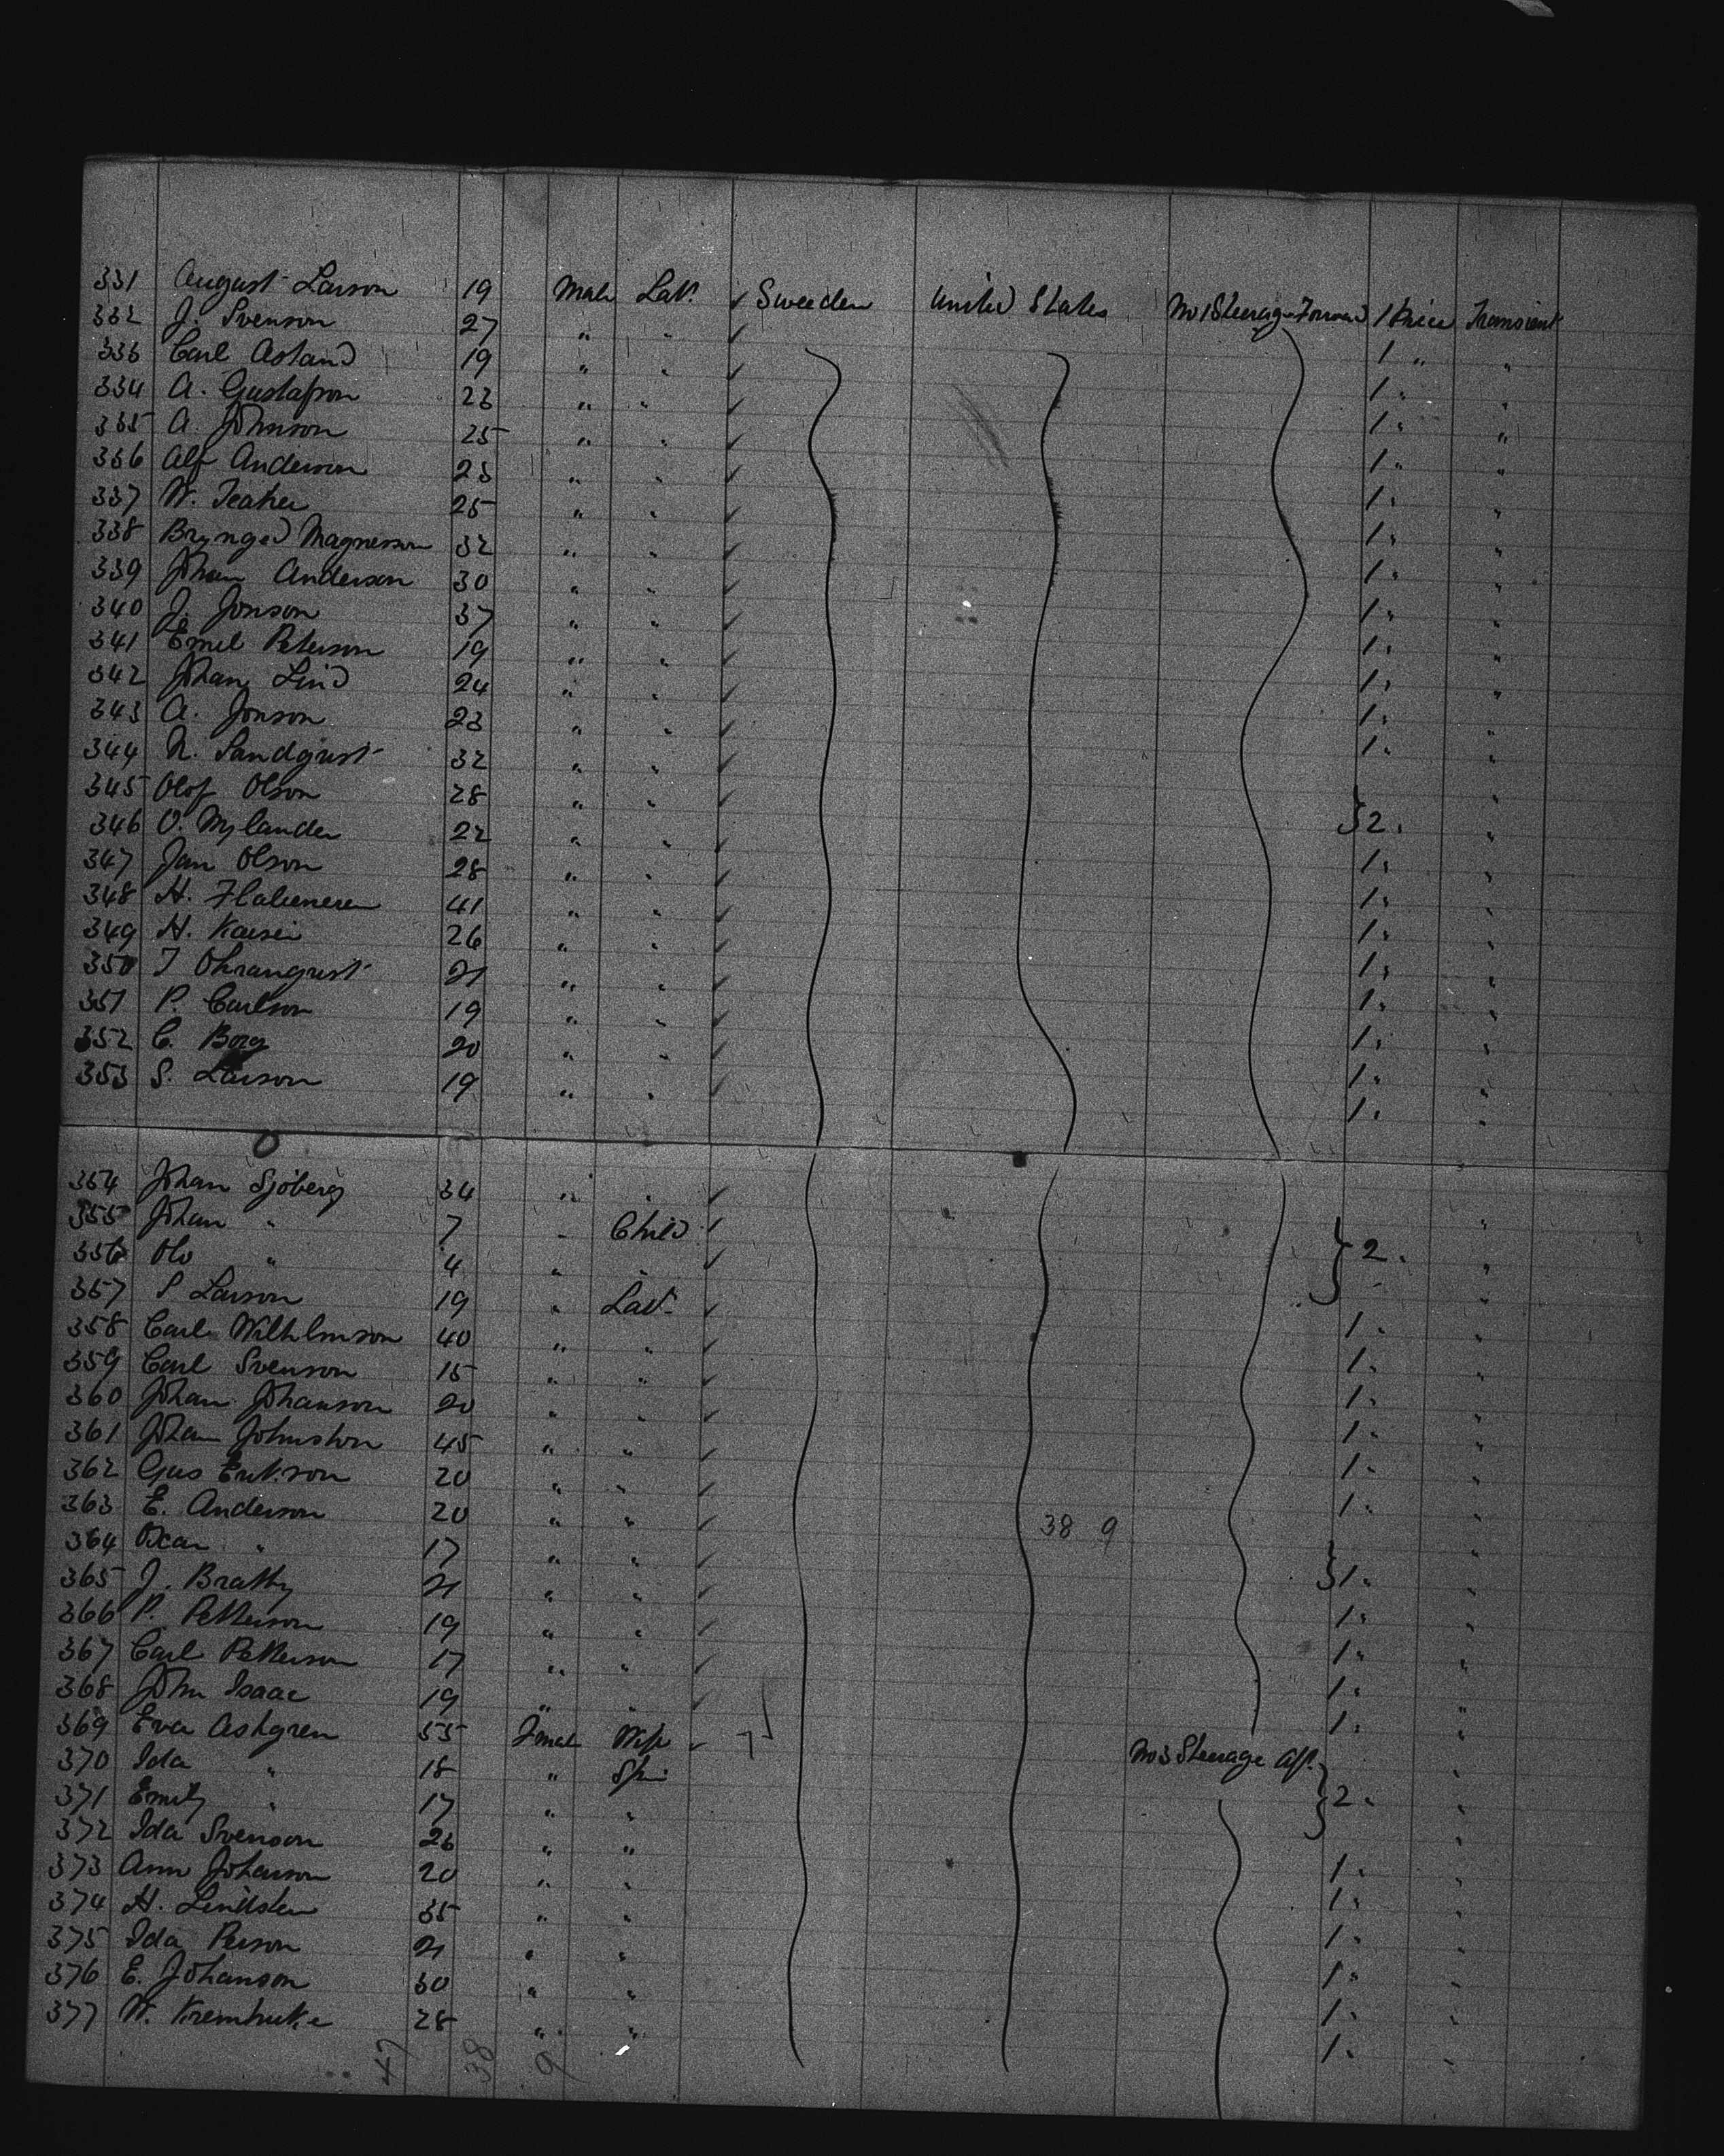 331 August Larson 19 Male Lab. ✓ Sweeden United States No 1 Steerage Forward 1 Piece Transient
332 J. Svenson 27 " " ✓ 1 " "
333 Carl Asland 19 " " ✓ 1 " "
334 A. Gustafson 23 " " ✓ 1 " "
335 A. Johnson 25 " " ✓ 1 " "
336 Alf Anderson 23 " " ✓ 1 " "
337 W. Teaher 25 " " ✓ 1 " "
338 Brynged Magnesson 32 " " ✓ 1 " "
339 Johan Anderson 30 " " ✓ 1 " "
340 J. Jonson 37 " " ✓ 1 " "
341 Emel Peterson 19 " " ✓ 1 " "
342 Johan Lind 24 " " ✓ 1 " "
343 A. Jonson 23 " " ✓ 1 " "
344 N. Sandqvist 32 " " ✓ "
345 Olof Olson 28 " " ✓ } 2 " "
346 O. Nylander 22 " " ✓ "
347 Jan Olson 28 " " ✓ 1 " "
348 H. 41 " " ✓ 1 " "
349 H. Kaisei 26 " " ✓ 1 " "
350 J Ohranqvist 21 " " ✓ 1 " "
351 P. Carlson 19 " " ✓ 1 " "
352 C. Borg 20 " " ✓ 1 " "
353 S. Larson 19 " " ✓ 1 " "
354 Johan Sjöberg 34 " " ✓ "
355 Johan " 7 " Child ✓ } 2 " "
356 Olo " 4 " " ✓ "
357 S Larson 19 " Lab. ✓ 1 " "
358 Carl Wilhlmson 40 " " ✓ 1 " "
359 Carl Svenson 15 " " ✓ 1 " "
360 Johan Johanson 20 " " ✓ 1 " "
361 Johan Johnston 45 " " ✓ 1 " "
362 Gus Erikson 20 " " ✓ 1 " "
363 E. Anderson 20 " " ✓ 38 9 "
364 Oscar " 17 " " ✓ } 1 " "
365 J. Bratty 21 " " ✓ 1 " "
366 P. Petterson 19 " " ✓ 1 " "
367 Carl Petterson 17 " " ✓ 1 " "
368 John Isaac 19 " " ✓ 1 " "
369 Eva Ashgren 55 Fmal Wife ✓ No 3 Steerage Aft. "
370 Ida " 18 " Spin } 2 " "
371 Emily " 17 " " "
372 Ida Svenson 26 " " 1 " "
373 Ann Johanson 20 " " 1 " "
374 H. Lindsten 35 " " 1 " "
375 Ida Person 21 " " 1 " "
376 E. Johanson 30 " " 1 " "
377 W. 28 " " 1 " "
47 38 9